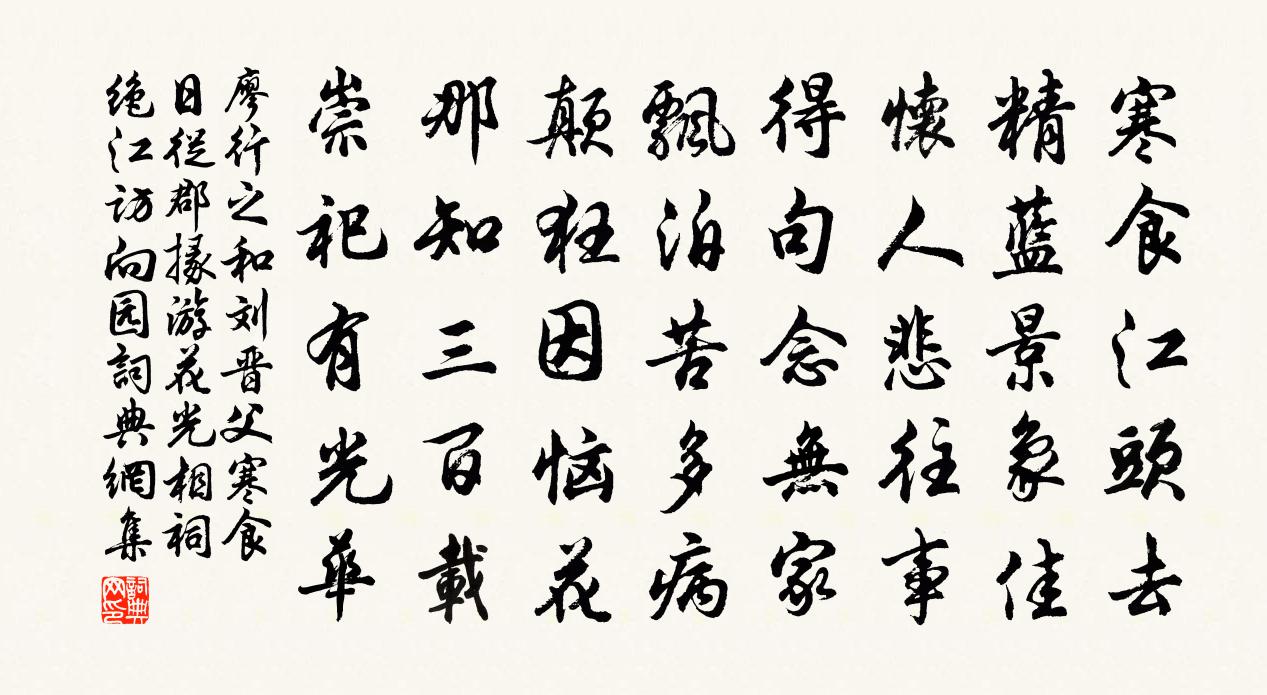 寒食江頭去
精藍景象佳
懷人悲往事
得句念無家
飄泊苦多病
顛狂因恼花
那知三百載
崇祀有光華
廖行之和刘晋父寒食
日從郡掾游花光相祠
绝江访向园詞典網集
詞典网印